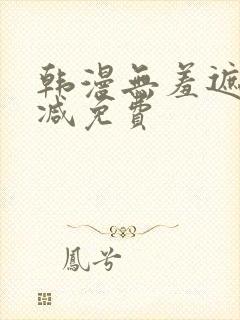 韩漫無羞遮
减免費
鳳兮